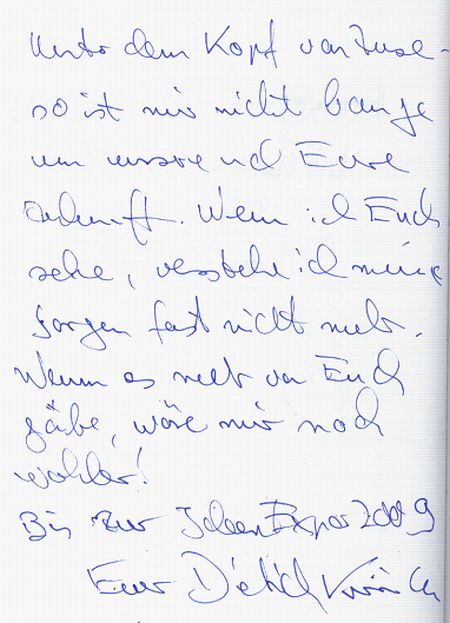 Unter dem Kopf von Zuse -
so ist mir nicht bange
um unsere und Eure
Zukunft. Wenn ich Euch
sehe, verstehe ich meine
Sorgen fast nicht mehr.
Wenn es mehr von Euch
gäbe, wäre mir noch
wohler!
Bis zur IdeenExpo 2009
Euer Dietrich